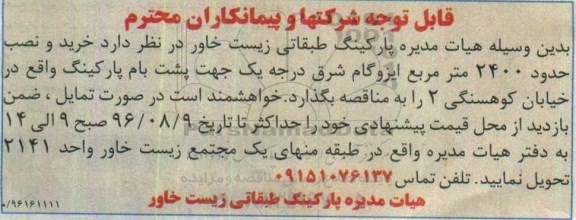 قابل توجه شرکتها و پیمانکاران محترم
بدین وسیله هیات مدیره پارکینگ طبقاتی زیست خاور در نظر دارد خرید و نصب
حدود ۲۴۰۰ متر مربع ایزوگام شرق درجه یک جهت پشت بام پارکینگ واقع در
خیابان کوهسنگی ۲ را به مناقصه بگذارد.خواهشمند است در صورت تمایل ، ضمن
بازدید از محل قیمت پیشنهادی خود را حداکثر تا تاریخ ۹۶/۰۸/۹ صبح ۹ الی ۱۴
به دفتر هیات مدیره واقع در طبقه منهای یک مجتمع زیست خاور واحد ۲۱۴۱
تحویل نمایید. تلفن تماس ۰۹۱۵۱۰۷۶۱۳۷
هیات مدیره پارکینگ طبقاتی زیست خاور
/۹۶۱۶۱۱۱۱